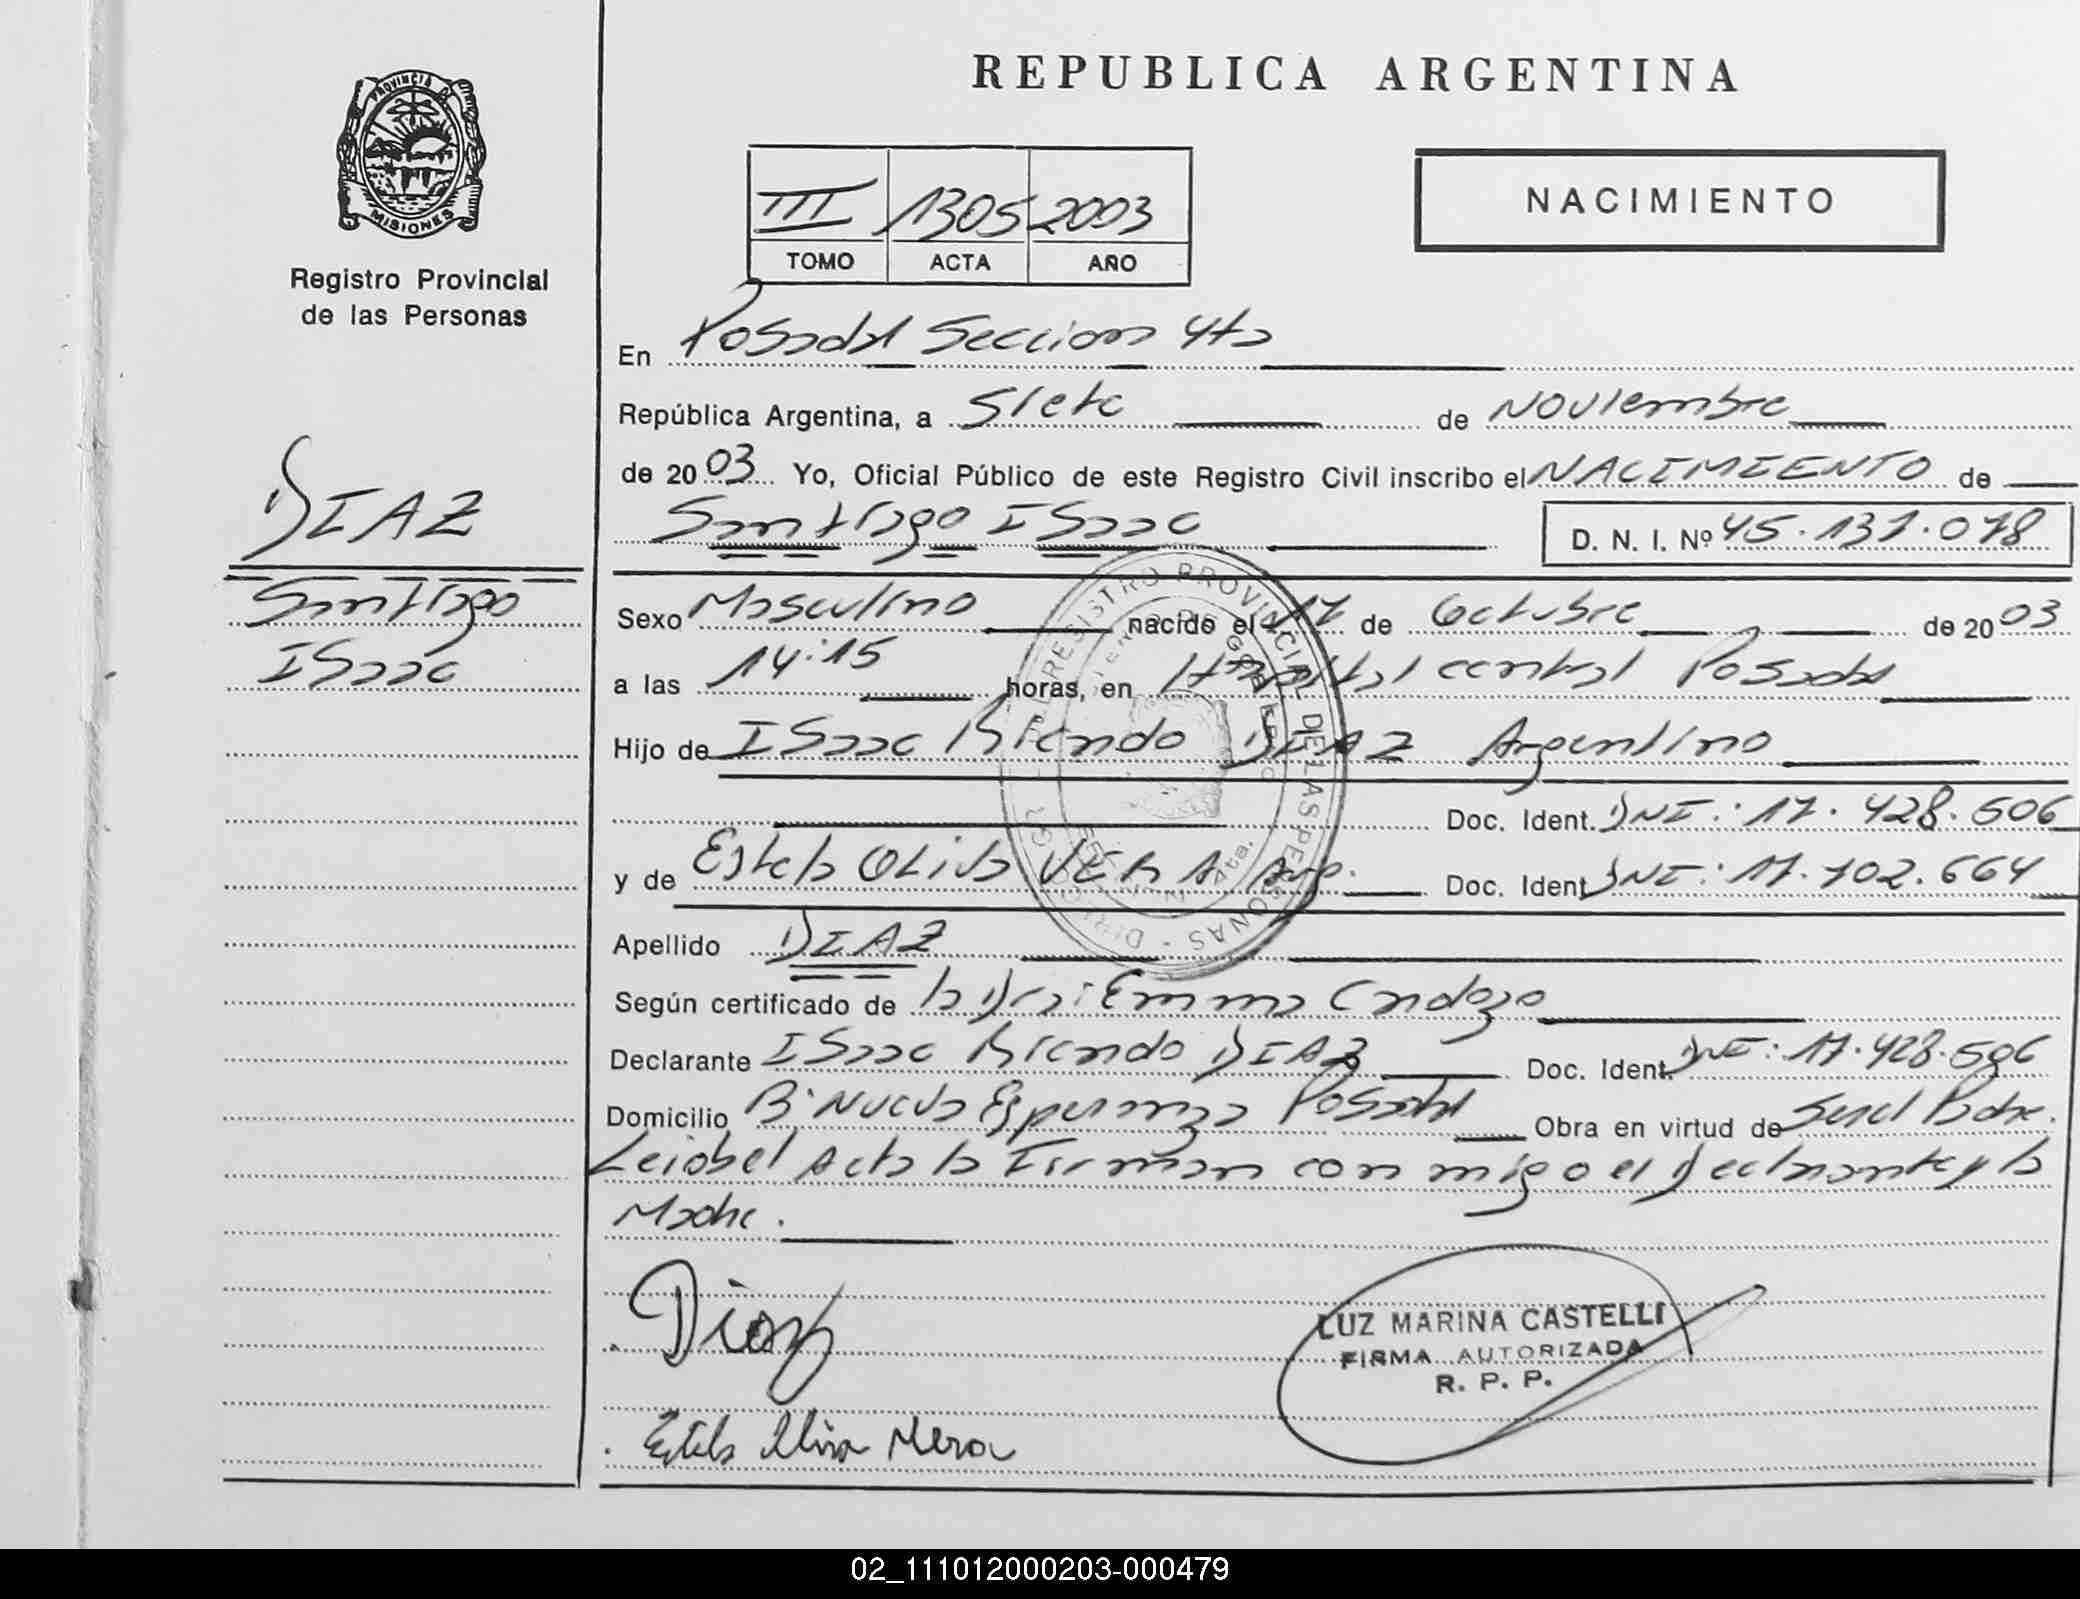 PROVINCIA DE
MISIONES
Registro Provincial
de las Personas
DIAZ
Santiago
Isaac
REPUBLICA ARGENTINA
III 1305 2003
TOMO ACTA AÑO
NACIMIENTO
En Posadas Seccion 4ta
República Argentina, a Siete de Noviembre
de 2003 Yo, Oficial Público de este Registro Civil inscribo el NACIMIENTO de
Santiago Isaac D. N. I. Nº 45.131.078
Sexo Masculino nacido el 17 de Octubre de 2003
a las 14:15 horas, en Hospital central Posadas
Hijo de Isaac Ricardo DIAZ Argentino
Doc. Ident. DNI: 17.428.506
y de Estela Oliva VERA Arg. Doc. Ident. DNI: 17.102.664
Apellido DIAZ
Según certificado de la Dra: Emma Cardozo
Declarante Isaac Ricardo DIAZ Doc. Ident. DNI: 17.428.506
Domicilio Bº Nueva Esperanza Posadas Obra en virtud de Ser el Padre.
Leida el Acta la Firman conmigo el Declarante y la
Madre.
Diaz
LUZ MARINA CASTELLI
FIRMA AUTORIZADA
R. P. P.
Estela
02_111012000203-000479